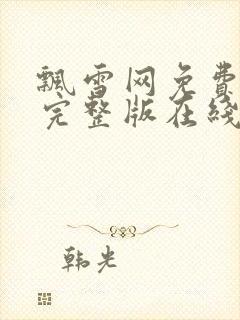 飘雪网免费
完整版在线
韩光